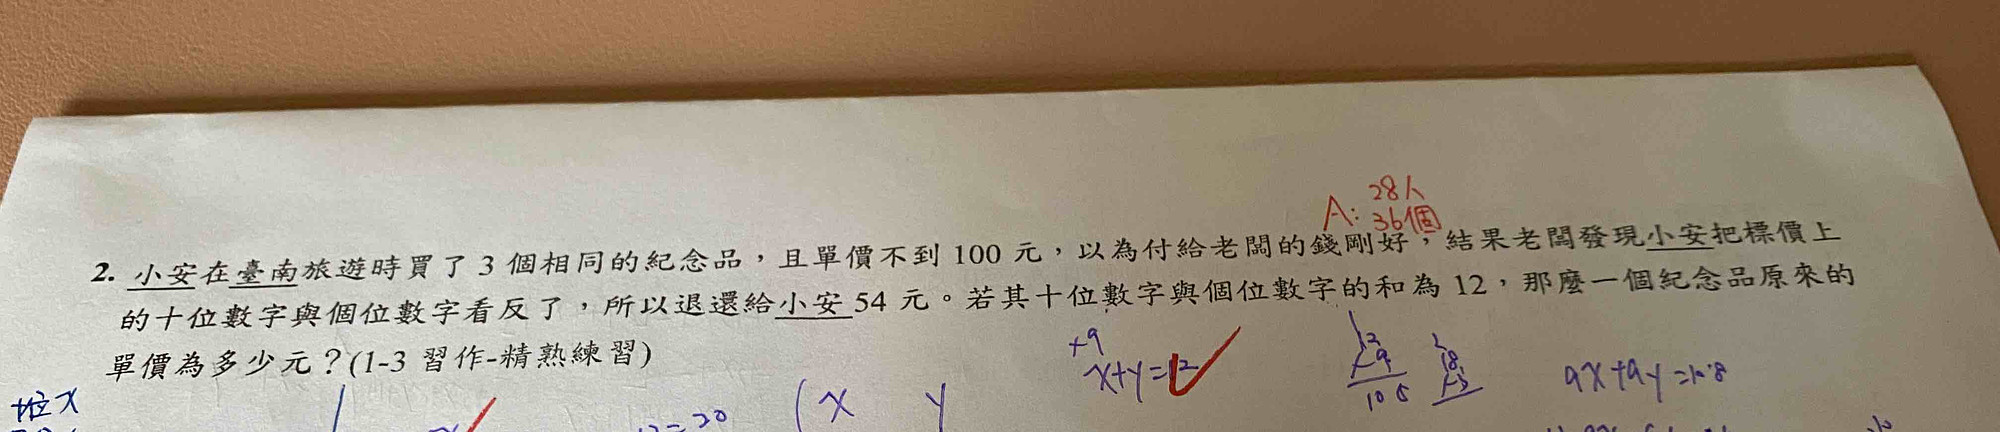 A: 28人
36個
2. 小安在臺南旅遊時買了 3 個相同的紀念品，且單價不到 100 元，以為付給老闆的錢剛好，結果老闆發現小安把標價上
的十位數字與個位數字看反了，所以退還給小安 54 元。若其十位數字與個位數字的和為 12，那麼一個紀念品原來的
單價為多少元？(1-3 習作-精熟練習)
+9
x+y=12
12
9
108
9x+9y=108
十位 x
=20
( x y